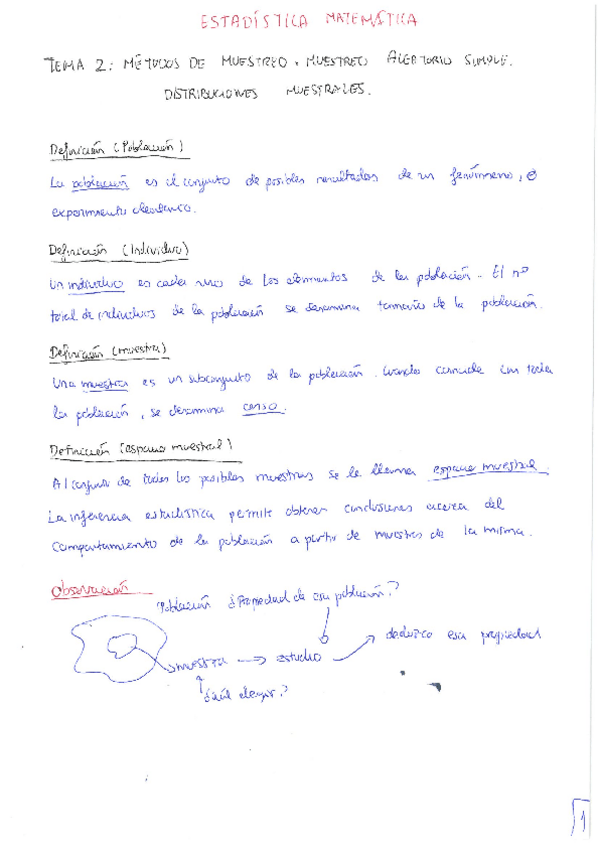 ESTADÍSTICA MATEMÁTICA
TEMA 2: MÉTODOS DE MUESTREO, MUESTREO ALEATORIO SIMPLE.
DISTRIBUCIONES MUESTRALES.
Definición (Población)
La población es el conjunto de posibles resultados de un fenómeno, o
experimento aleatorio.
Definición (Individuo)
Un individuo es cada uno de los elementos de la población. El nº
total de individuos de la población se denomina tamaño de la población.
Definición (muestra)
Una muestra es un subconjunto de la población. Cuando coincide con toda
la población, se denomina censo.
Definición (espacio muestral)
Al conjunto de todas las posibles muestras se le llama espacio muestral.
La inferencia estadística permite obtener conclusiones acerca del
comportamiento de la población a partir de muestras de la misma.
Observación
Población ¿Propiedad de esa población?
muestra → estudio → deduzco esa propiedad
¿cuál elegir?
1